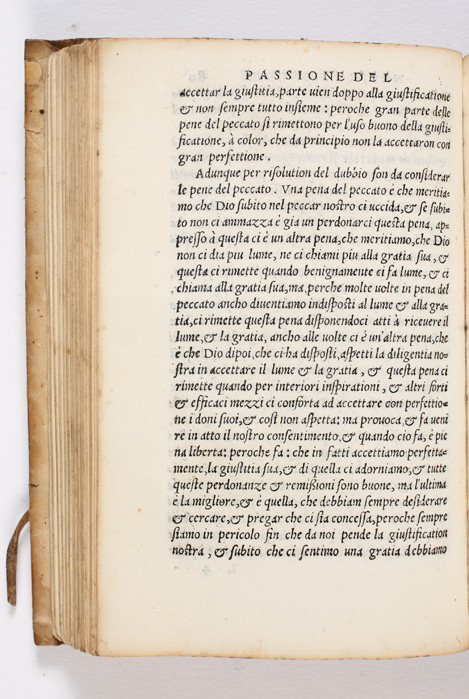 PASSIONE DEL
accettar la giustitia, parte uien doppo alla giustificatione
& non sempre tutto insieme : peroche gran parte delle
pene del peccato si rimettono per l'uso buono della giusti-
ficatione, à color, che da principio non la accettaron con
gran perfettione.
Adunque per risolution del dubbio son da considerar
le pene del peccato. Vna pena del peccato è che meritia-
mo che Dio subito nel peccar nostro ci uccida, & se subi-
to non ci ammazza è gia un perdonarci questa pena, ap-
presso à questa ci è un altra pena, che meritiamo, che Dio
non ci dia piu lume, ne ci chiami piu alla gratia sua, &
questa ci rimette quando benignamente ci fa lume, & ci
chiama alla gratia sua, ma, perche molte uolte in pena del
peccato ancho diuentiamo indisposti al lume & alla gra-
tia, ci rimette questa pena disponendoci atti à riceuere il
lume, & la gratia, ancho alle uolte ci è un'altra pena, che
è che Dio dipoi, che ci ha disposti, aspetti la diligentia no-
stra in accettare il lume & la gratia, & questa pena ci
rimette quando per interiori inspirationi, & altri forti
& efficaci mezzi ci conforta ad accettare con perfettio-
ne i doni suoi, & cosi non aspetta: ma prouoca, & fa ueni
re in atto il nostro consentimento, & quando cio fa, è pie
na liberta: peroche fa : che in fatti accettiamo perfetta-
mente, la giustitia sua, & di quella ci adorniamo, & tutte
queste perdonanze & remissioni sono buone, ma l'ultima
è la migliore, & è quella, che debbiam sempre desiderare
& cercare, & pregar che ci sia concessa, peroche sempre
siamo in pericolo fin che da noi pende la giustification
nostra, & subito che ci sentimo una gratia debbiamo